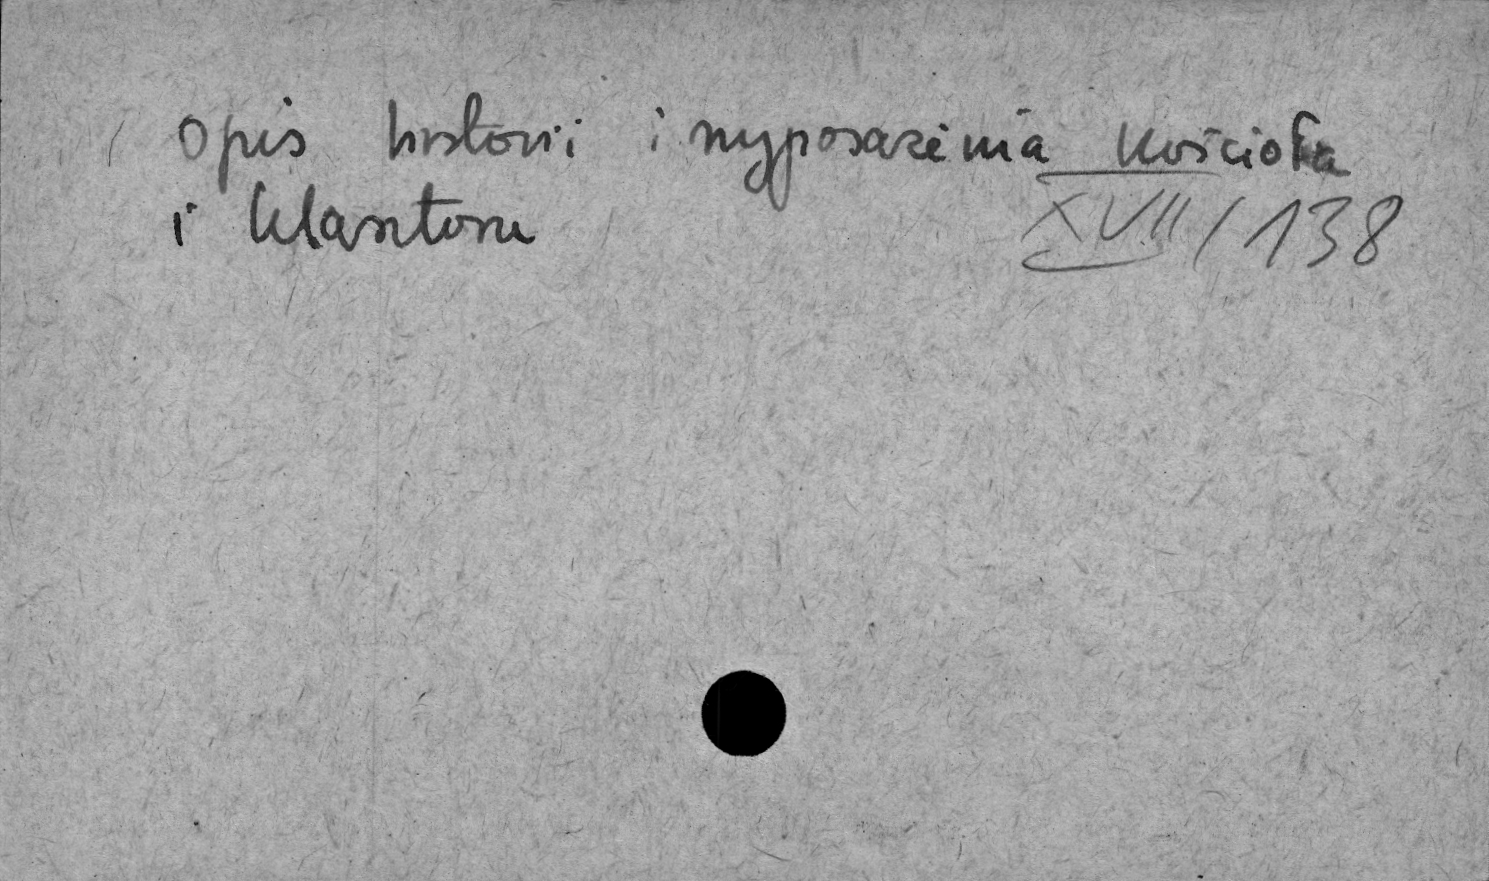 Opis historii i wyposażenia kościoła
i klasztoru XVII/138